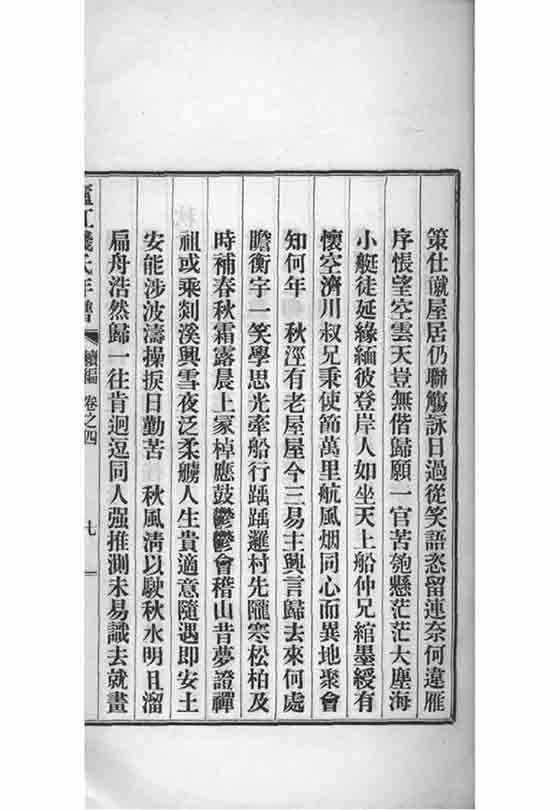 策仕僦屋居仍聯觴詠日過從笑語恣留連奈何違雁
序悵望空雲天豈無偕歸願一官苦匏懸茫茫大塵海
小艇徒延緣緬彼登岸人如坐天上船仲兄綰墨綬有
懷空濟川叔兄秉使節萬里航風烟同心而異地聚會
知何年　秋涇有老屋屋今三易主興言歸去來何處
瞻衡宇一笑學思光牽船行踽踽邐村先隴寒松柏及
時補春秋霜露晨上冢棹應鼓鬱鬱會稽山昔夢證禪
祖或乘剡溪興雪夜泛柔艣人生貴適意隨遇即安土
安能涉波濤操扳日勤苦　秋風清以駛秋水明且溜
扁舟浩然歸一往肯迴逗同人强推測未易識去就畫
廬江錢氏年譜　續編　卷之四　七